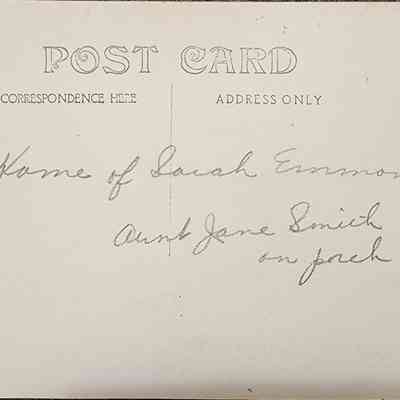 POST CARD
CORRESPONDENCE HERE
ADDRESS ONLY
Home of Sarah Emmon
Aunt Jane Smith
on porch